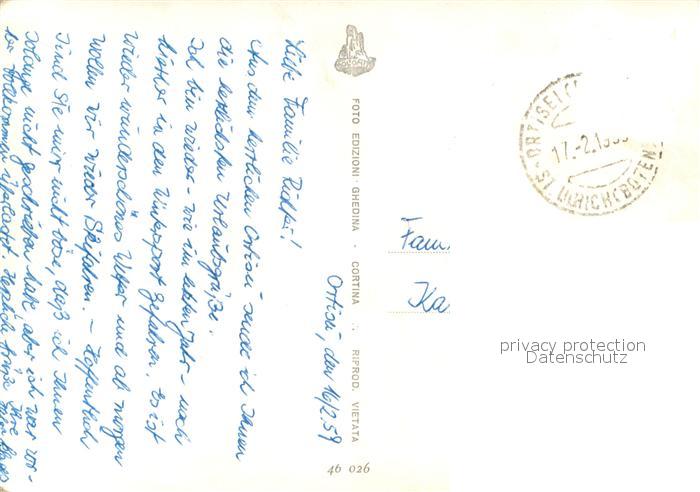 Ortisei, den 16/2.59
Liebe Familie Richter!
Aus dem herrlichen Ortisei sende ich Ihnen
die herzlichsten Urlaubsgrüße.
Ich bin wieder - wie im letzten Jahr - nach
hierher in den Wintersport gefahren. Es ist
wieder wunderschönes Wetter und ab morgen
wollen wir wieder Skifahren. - Hoffentlich
sind Sie mir nicht böse, daß ich Ihnen
solange nicht geschrieben habe, aber ich war vor-
her vollkommen überlastet. Herzliche Grüße Ihre
FOTO EDIZIONI GHEDINA · CORTINA · RIPROD. VIETATA
46 026
ORTISEI
17.-2.1959
ST. ULRICH (BOZEN)
Fam.
Ka
privacy protection
Datenschutz